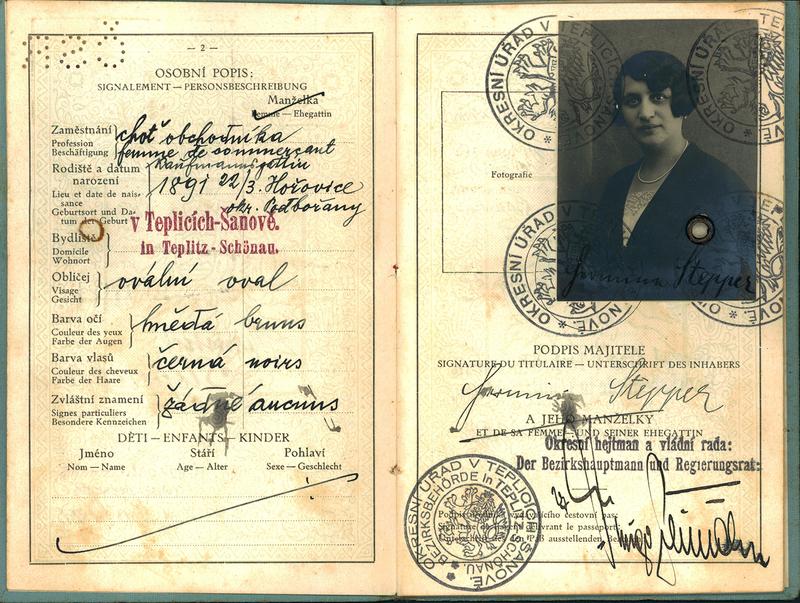 — 2 —
OSOBNÍ POPIS:
SIGNALEMENT — PERSONSBESCHREIBUNG
Manželka
Femme — Ehegattin
Zaměstnání
Profession
Beschäftigung
choť obchodníka
femme de commerçant
Kaufmannsgattin
Rodiště a datum
narození
Lieu et date de nais-
sance
Geburtsort und Da-
tum der Geburt
1891 22/3. Hořovice
okr. Podbořany
v Teplicích-Šanově.
in Teplitz-Schönau.
Bydliště
Domicile
Wohnort
Obličej
Visage
Gesicht
ovální oval
Barva očí
Couleur des yeux
Farbe der Augen
hnědá bruns
Barva vlasů
Couleur des cheveux
Farbe der Haare
černá noirs
Zvláštní znamení
Signes particuliers
Besondere Kennzeichen
žádné aucuns
DĚTI — ENFANTS — KINDER
Jméno Stáří Pohlaví
Nom — Name Age — Alter Sexe — Geschlecht
Fotografie
OKRESNÍ ÚŘAD V TEPLICÍCH
OKRESNÍ ÚŘAD V
Stepper
PODPIS MAJITELE
SIGNATURE DU TITULAIRE — UNTERSCHRIFT DES INHABERS
Stepper
A JEHO MANŽELKY
ET DE SA FEMME — UND SEINER EHEGATTIN
Okresní hejtman a vládní rada:
Der Bezirkshauptmann und Regierungsrat:
OKRESNÍ ÚŘAD V TEPLICÍCH ŠANOVĚ
BEZIRKSBEHÖRDE in TEPLITZ SCHÖNAU